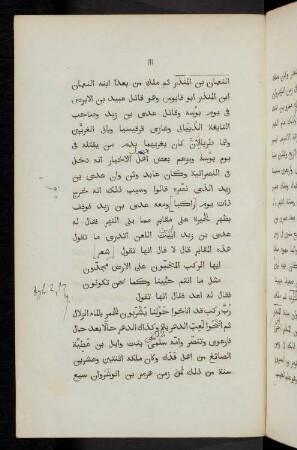 النعمان بن المنذر ثم ملك من بعده ابنه النعمان
ابن المنذر ابو قابوس وهو قاتل عبيد بن الابرص
في يوم بوسه وقاتل عدى بن زيد وصاحب
النابغة الذبيانى وغازى قرقيسيا وبانى الغريين
وهما طربالان كان يغريهما بدم من يقتله في
يوم بوسه ويزعم بعض اهل الاخبار انه دخل
في النصرانية وكان عابد وثن وان عدى بن
زيد الذى نصره قالوا وسبب ذلك انه خرج
ذات يوم راكبا ومعه عدى بن زيد فوقف
بظهر الحيرة على مقابر مما يلى النهر فقال له
عدى بن زيد ابيت اللعن اتدرى ما تقول
هذه المقابر قال لا قال انها تقول [شعر]
ايها الركب المخبون على الارض مجدون
مثل ما انتم حيينا وكما نحن تكونون
فقال له اعد فقال انها تقول
رب ركب قد اناخوا حولنا يشربون الخمر بالماء الزلال
ثم اضحوا لعب الدهر بهم وكذاك الدهر حالا بعد حال
فارعوى وتنصر وامه سلمى بنت وايل بن عطية
الصائغ من اهل فدك وكان ملكه اثنتين وعشرين
سنة من ذلك فى زمن هرمز بن انوشروان سبع